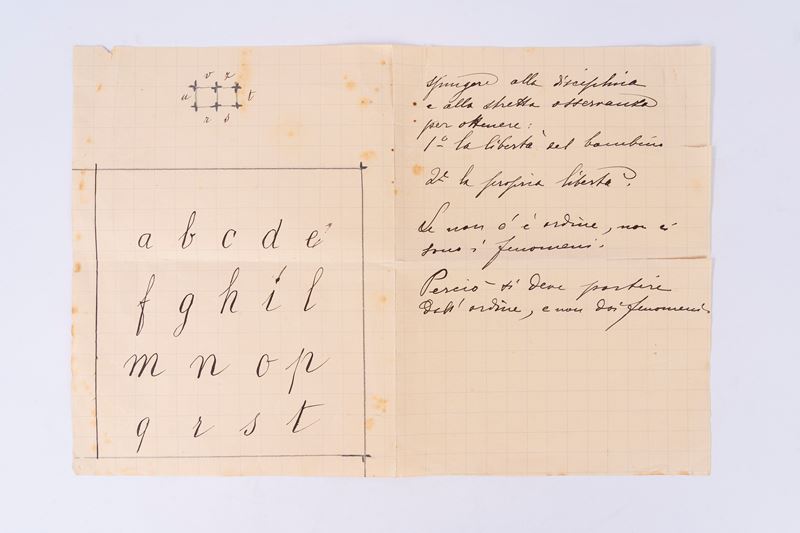 v z
u t
r s
a b c d e
f g h i l
m n o p
q r s t
spungere alla disciplina
e alla stretta osservanza
per ottenere:
1º la libertà del bambino
2º la propria libertà.
Se non c'è ordine, non ci
sono i fenomeni.
Perciò si deve partire
dall'ordine, e non dai fenomeni